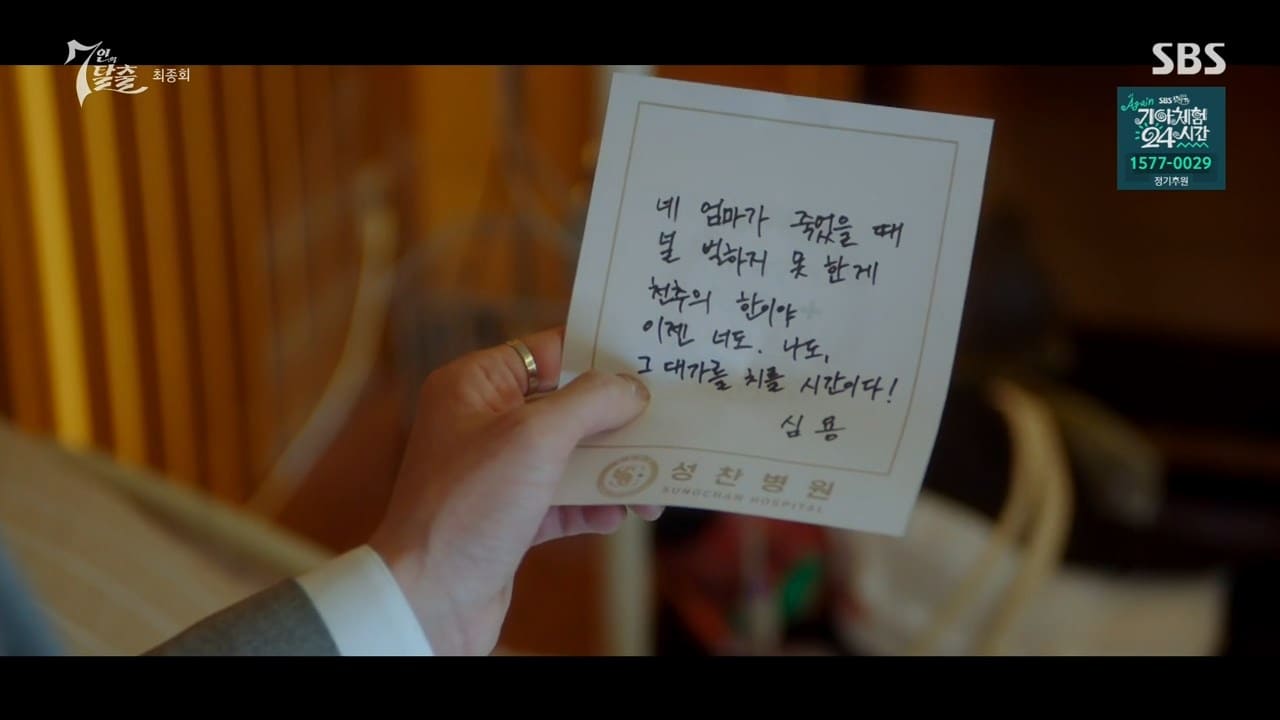 7인의 탈출 최종회
SBS
Again SBS
기아체험
24시간
1577-0029
정기후원
네 엄마가 죽었을 때
널 벌하지 못 한게
천추의 한이야
이젠 너도. 나도,
그 대가를 치를 시간이다!
심 용
성찬병원
SUNGCHAN HOSPITAL